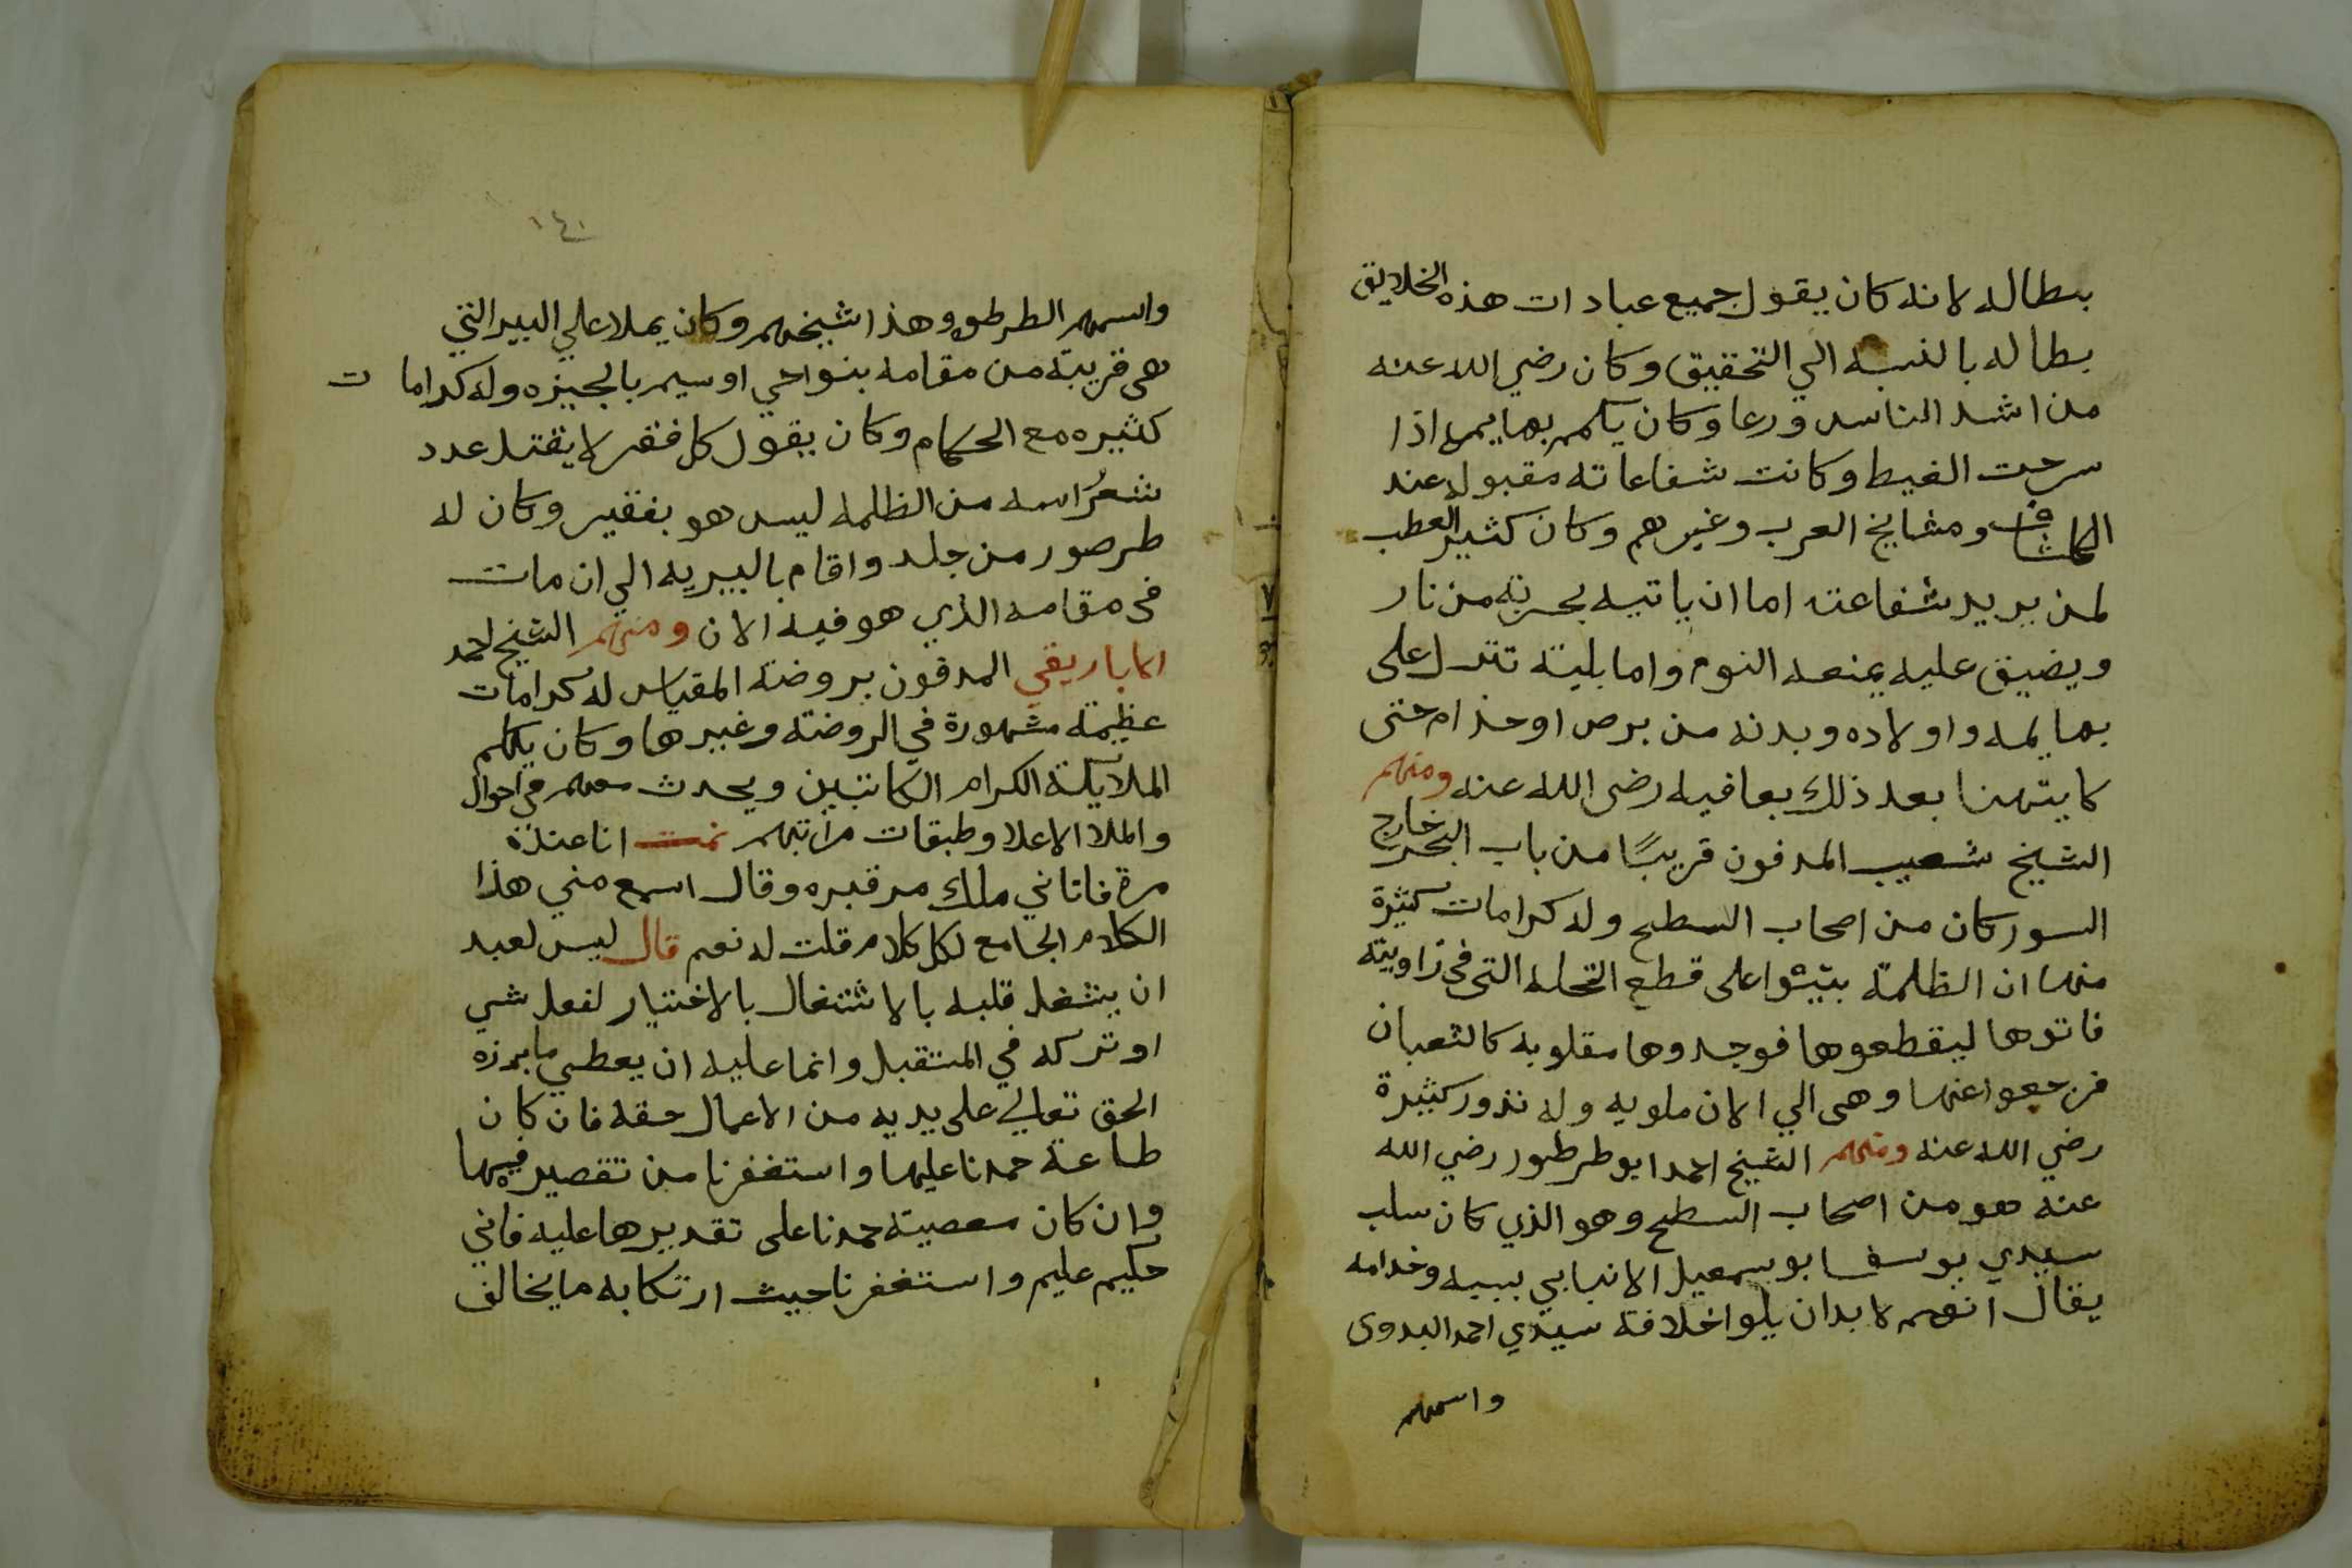 بطاله لانه كان يقول جميع عبادات هذه الخلايق
بطاله بالنسبه الي التحقيق وكان رضي الله عنه
من اشد الناس ورعا وكان يكمم بهايمه اذا
سرحت الغيط وكانت شفاعاته مقبوله عند
الكاشف ومشايخ العرب وغيرهم وكان كثير العطب
لمن يريد شفاعته اما ان ياتيه بحربة من نار
ويضيق عليه يمنعه النوم واما بلية تنزل على
بهايمه واولاده وبدنه من برص او جذام حتى
كا يتهنا بعد ذلك بعافيه رضى الله عنه ومنهم
الشيخ شعيب المدفون قريبًا من باب البحر خارج
السور كان من اصحاب السطح وله كرامات كثيرة
منها ان الظلمة بيتوا على قطع النخله التى فى زاويته
فاتوها ليقطعوها فوجدوها مقلوبه كالثعبان
فرجعوا عنها وهى الي الان ملويه وله نذور كثيرة
رضي الله عنه ومنهم الشيخ احمد ابو طرطور رضي الله
عنه هو من اصحاب السطح وهو الذي كان سلب
سيدي يوسف ابو سمعيل الانبابي بسببه وخدامه
يقال انهم لا بد ان يلوا خلافة سيدي احمد البدوى
واسمهم
١٤١
واسمهم الطرطور وهذا شيخهم وكان يملا علي البير التي
هى قريبة من مقامه بنواحي اوسيم بالجيزه وله كرامات
كثيره مع الحكام وكان يقول كل فقير لا يقتل عدد
شعر راسه من الظلمه ليس هو بفقير وكان له
طرصور من جلد واقام بالبيريه الي ان مات
فى مقامه الذي هو فيه الان ومنهم الشيخ احمد
الاباريقي المدفون بروضة المقياس له كرامات
عظيمة مشهورة في الروضة وغيرها وكان يكلم
الملايكة الكرام الكاتبين ويحدث معهم في احوال
والملا الاعلا وطبقات مراتبهم نمت انا عنده
مرة فاتاني ملك من قبره وقال اسمع مني هذا
الكلام الجامع لكل كلام قلت له نعم قال ليس لعبد
ان يشغل قلبه بالاشتغال بالاختيار لفعل شي
او تركه في المستقبل وانما عليه ان يعطي ما يبرزه
الحق تعالي على يديه من الاعمال حقه فان كان
طاعة حمدنا عليها واستغفرنا من تقصير فيها
وان كان معصية حمدنا على تقديرها عليه فاني
حكيم عليم واستغفرنا حيث ارتكابه ما يخالف